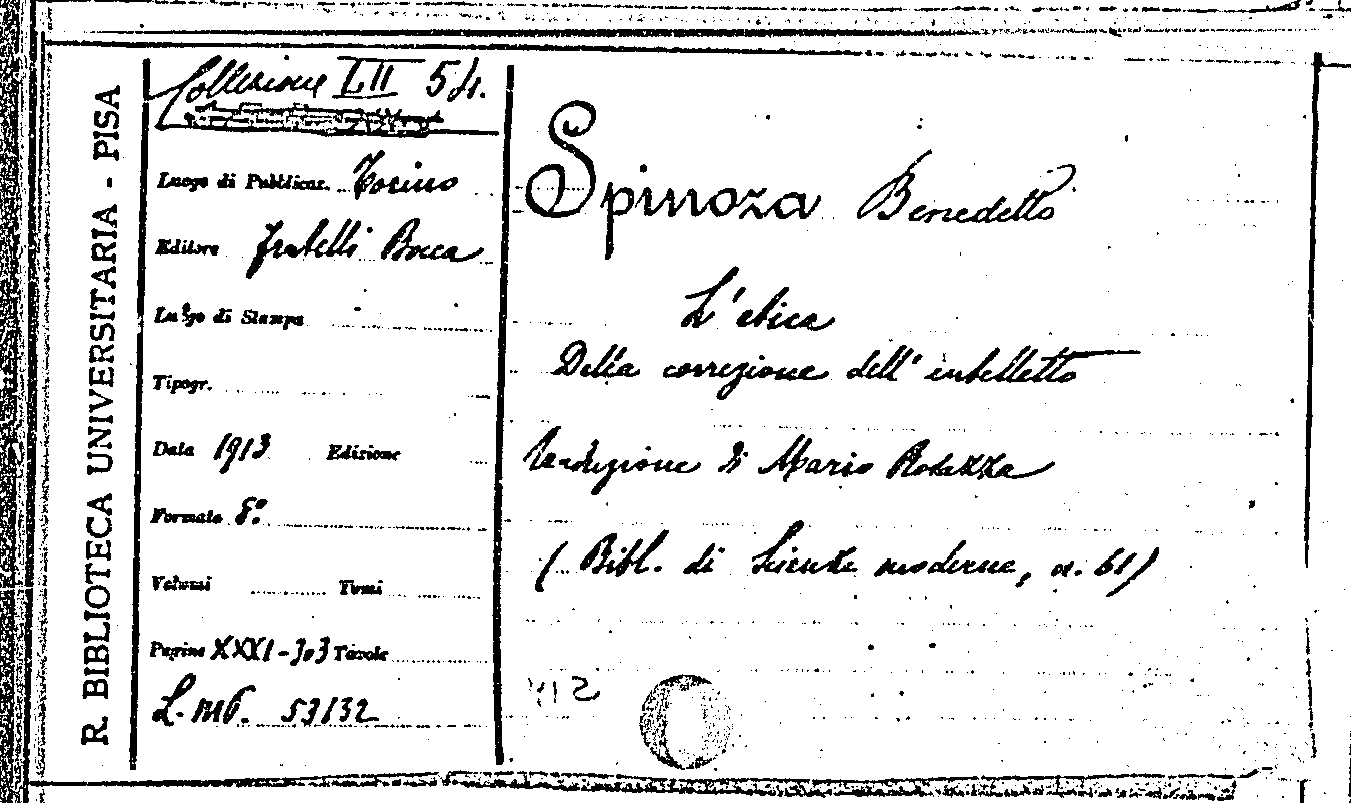 R. BIBLIOTECA UNIVERSITARIA - PISA
Collezione LII 54.
Luogo di Pubblicaz. Torino
Editore Fratelli Bocca
Luogo di Stampa
Tipogr.
Data 1913 Edizione
Formato 8°
Volumi Tomi
Pagine XXXI-303 Tavole
L. mb. 53132
Spinoza Benedetto
L'etica
Della correzione dell'intelletto
traduzione di Mario Rosazza
( Bibl. di Scienze moderne, n. 61)